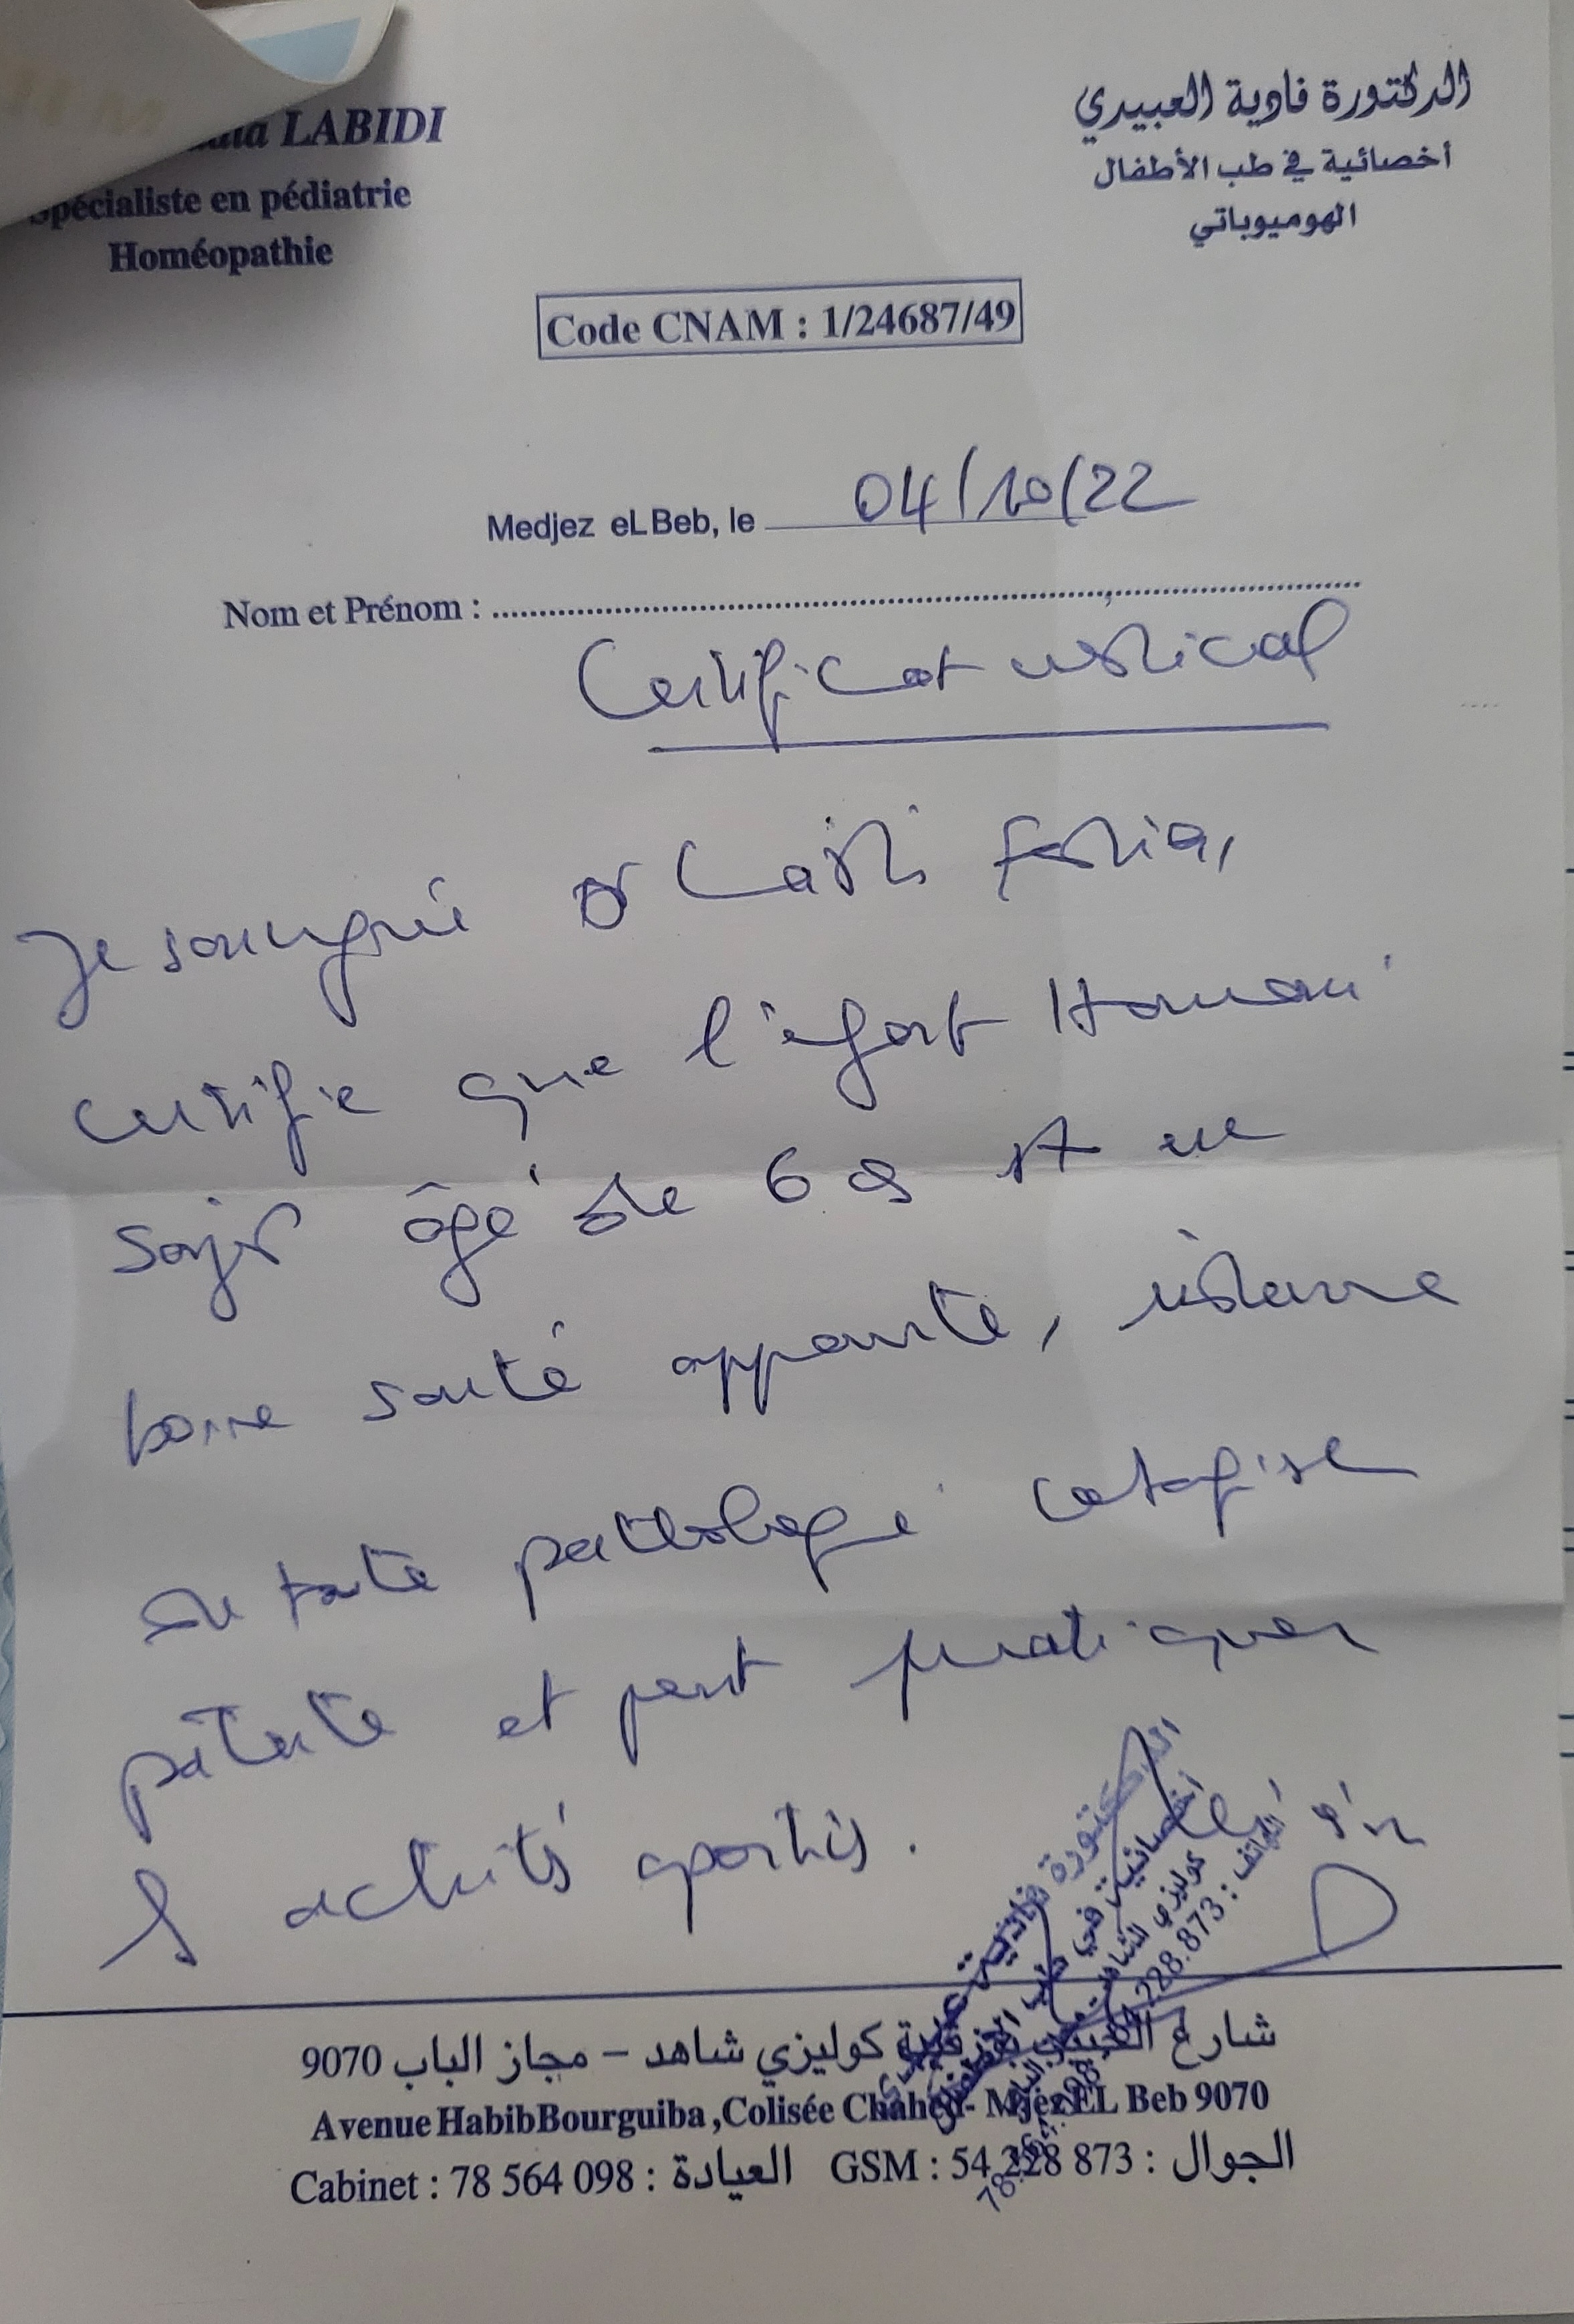 LABIDI
Spécialiste en pédiatrie
Homéopathie
الدكتورة فادية العبيدي
أخصائية في طب الأطفال
الهوميوباتي
Code CNAM : 1/24687/49
Medjez eL Beb, le 04/10/22
Nom et Prénom :
Certificat médical
Je soussigné Dr Labidi Fadia,
certifie que l'enfant Hammami
âgé de 6 a est en
bonne santé apparente, indemne
de toute pathologie contagieuse
patente et peut pratiquer
activités sportives.
شارع الحبيب بورقيبة كوليزي شاهد – مجاز الباب 9070
Avenue Habib Bourguiba, Colisée Chahed - Mjez EL Beb 9070
Cabinet : 78 564 098 : العيادة GSM : 54 228 873 : الجوال